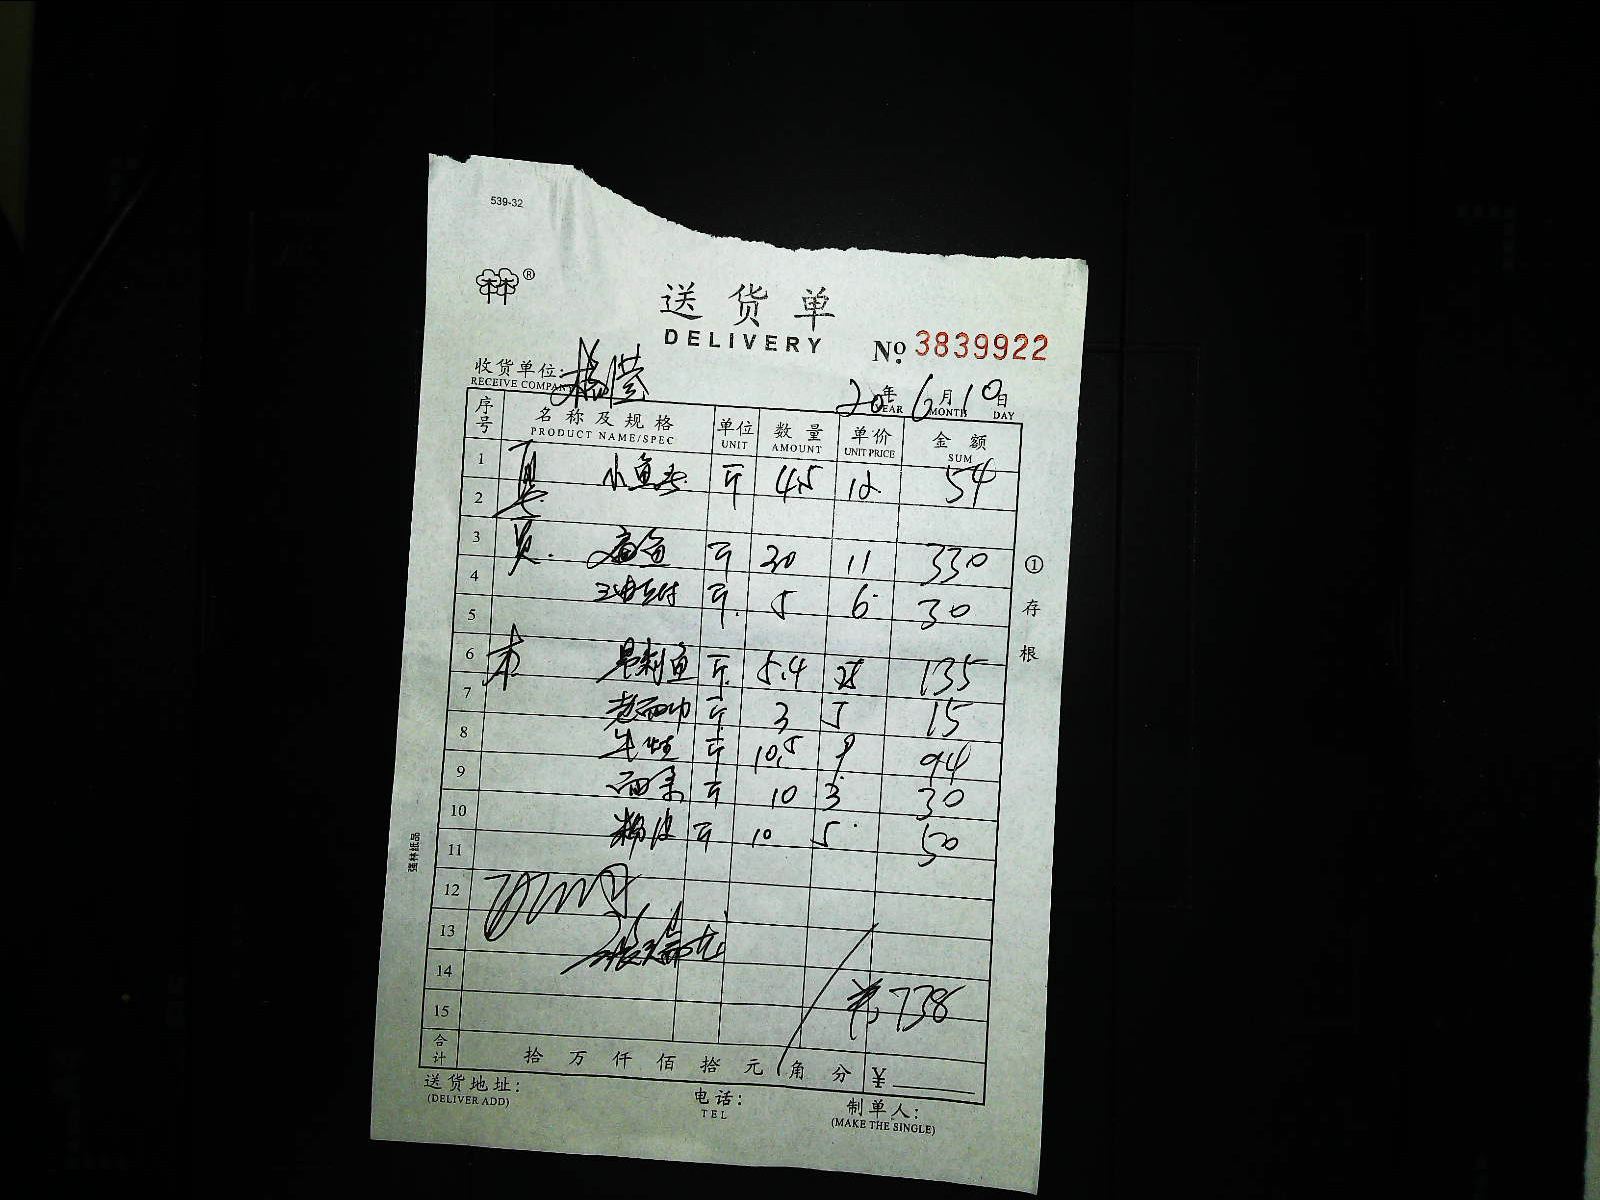 539-32
®
送货单
DELIVERY
№ 3839922
收货单位:
RECEIVE COMPANY
20年6月10日
YEAR MONTH DAY
序号 名称及规格 单位 数量 单价 金额
PRODUCT NAME/SPEC UNIT AMOUNT UNIT PRICE SUM
1 小鱼 斤 4.5 12 54
2
3 鱼 斤 30 11 330
4 斤 5 6 30
5
6 鱼 斤 5.4 25 135
7 斤 3 5 15
8 斤 10.5 9 94
9 斤 10 3 30
10 粉皮 斤 10 5 50
11
12
13
14
¥738
15
合计 拾万仟佰拾元角分 ¥
① 存根
强林纸品
送货地址: 电话: 制单人:
(DELIVER ADD) TEL (MAKE THE SINGLE)